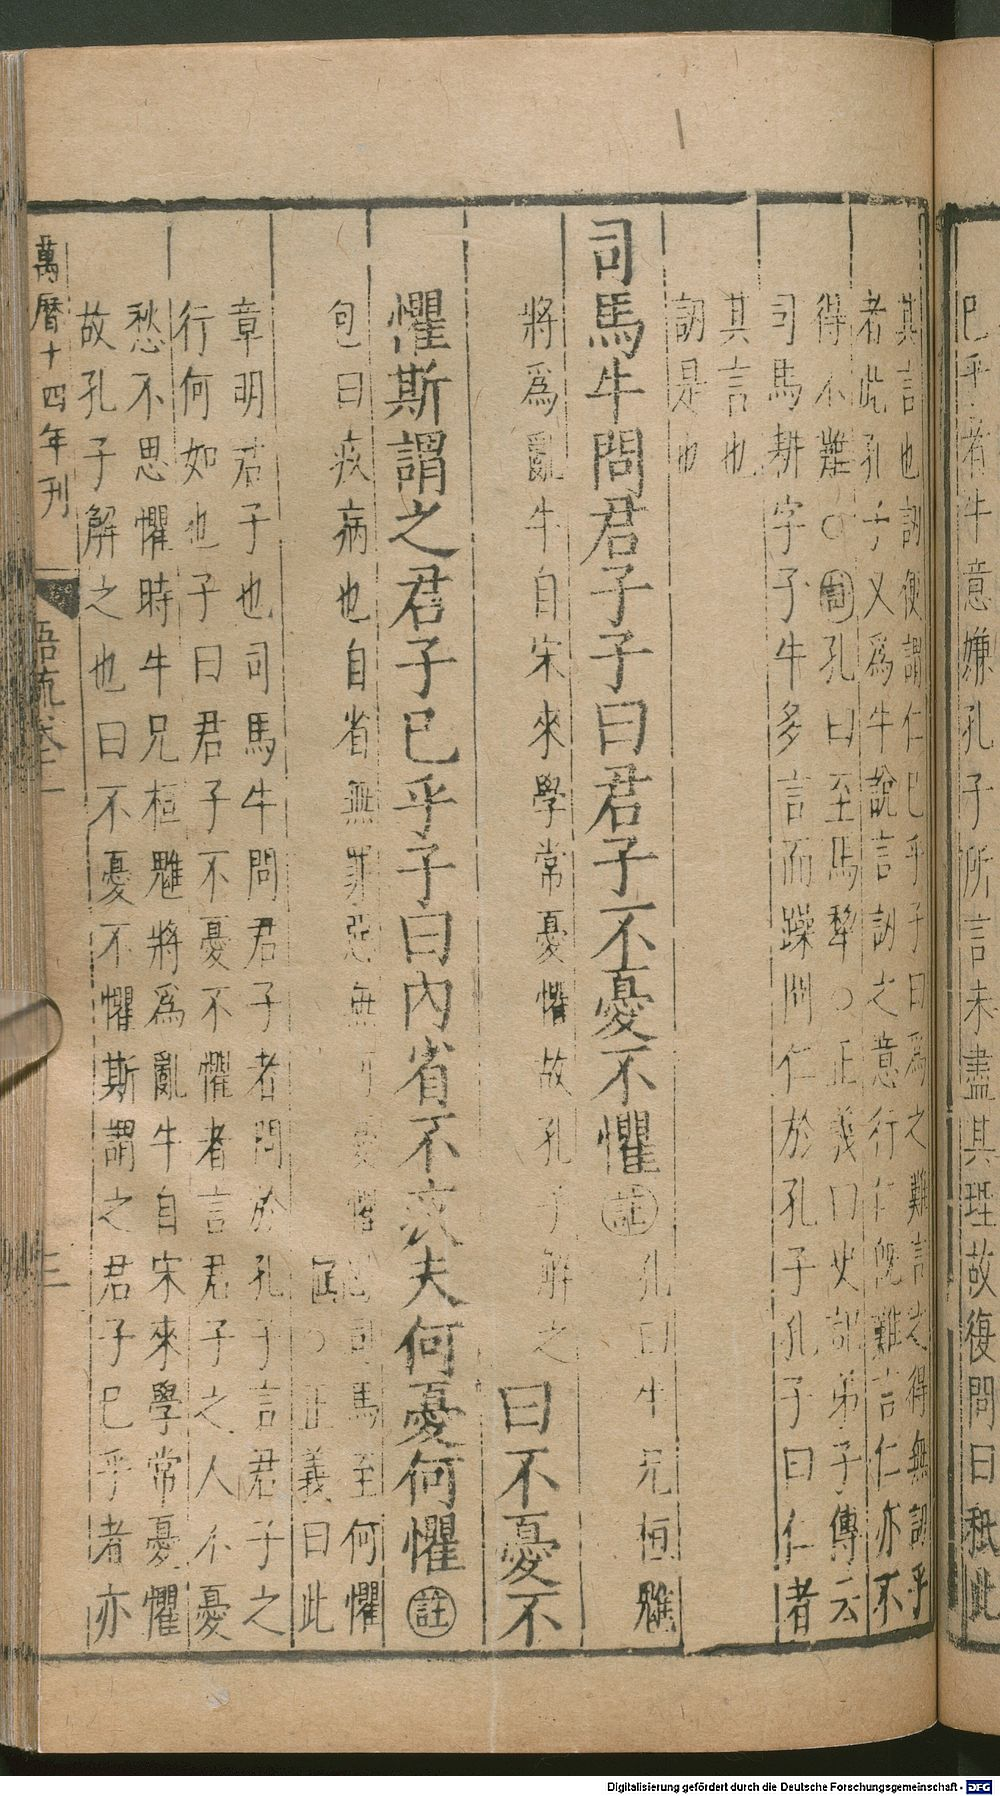 巳乎者牛意嫌孔子所言未盡其理故復問曰秪此
其言也訒便謂仁巳乎子曰為之難言之得無訒乎
者此孔子又爲牛說言訒之意行仁旣難言仁亦不
得不難○註孔曰至馬犂○正義曰史記弟子傳云
司馬耕字子牛多言而躁問仁於孔子孔子曰仁者
其言也
訒是也
司馬牛問君子子曰君子不憂不懼註孔曰牛兄桓魋
將爲亂牛自宋來學常憂懼故孔子解之
曰不憂不
懼斯謂之君子巳乎子曰內省不疚夫何憂何懼註
包曰疚病也自省無罪惡無可憂懼
司馬至何懼
○正義曰此
章明君子也司馬牛問君子者問於孔子言君子之
行何如也子曰君子不憂不懼者言君子之人不憂
愁不思懼時牛兄桓魋將爲亂牛自宋來學常憂懼
故孔子解之也曰不憂不懼斯謂之君子巳乎者亦
萬曆十四年刊
語疏卷十二
三
Digitalisierung gefördert durch die Deutsche Forschungsgemeinschaft - DFG